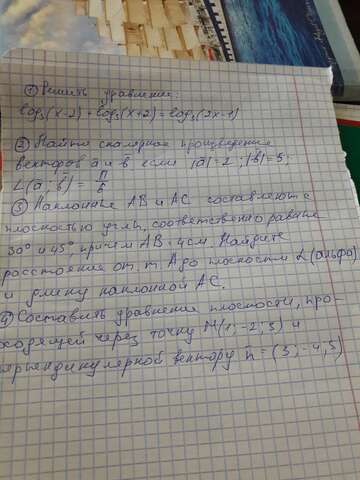 ① Решить уравнение:
log₃(x-2) + log₃(x+2) = log₃(2x-1)
② Найти скалярное произведение
векторов a и b̄ если |ā|=2; |b̄|=5;
∠(ā; b̄) = π/6
③ Наклонные AB и AC составляют с
плоскостью углы, соответственно равные
30° и 45°, причём AB=4см. Найдите
расстояние от т. A до плоскости L (альфа)
и длину наклонной AC.
④ Составить уравнение плоскости, про-
ходящей через точку M(1;-2;3) и
перпендикулярной вектору n̄=(3;-4;5)